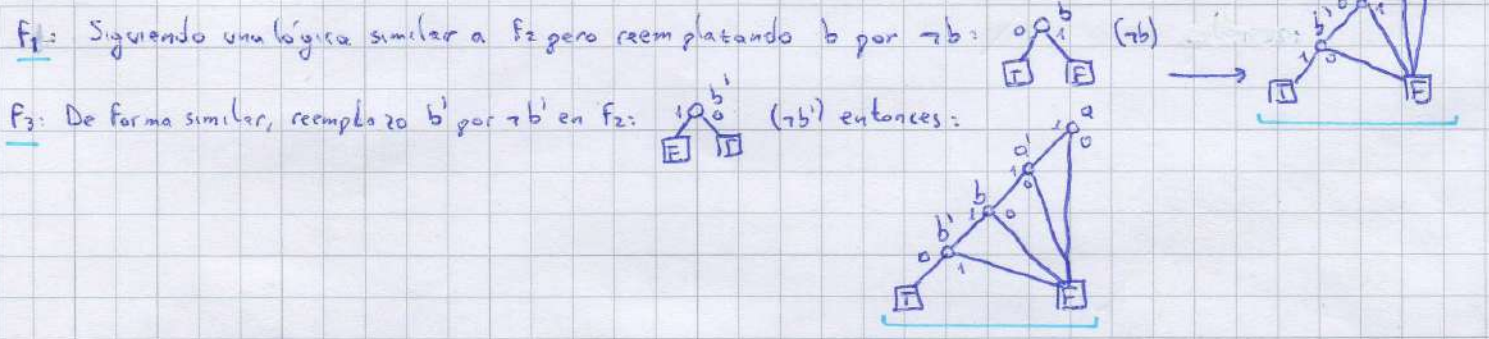 F1: Siguiendo una lógica similar a F2 pero reemplazando b por ¬b: 0 b 1 T F (¬b)
0 1 b' 1 0 T F
F3: De forma similar, reemplazo b' por ¬b' en F2: 1 b' 0 F T (¬b') entonces:
1 a 0
a' 1 0
b 1 0
b' 0 1
T F